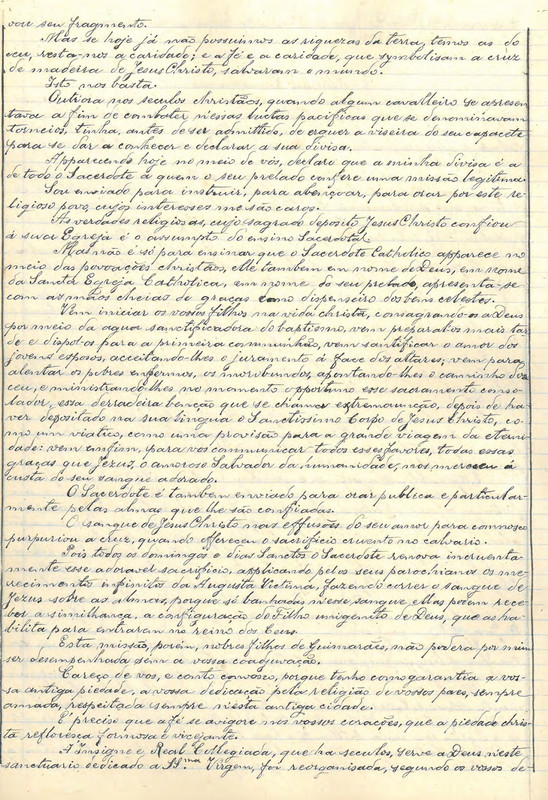 vou seu fragmento.
Mas se hoje já não possuimos as riquezas da terra, temos as do
ceu, resta-nos a caridade; e a fé e a caridade, que symbolisam a cruz
de madeira de Jesus Christo, salvaram o mundo.
Isto nos basta.
Outrora nos seculos christãos, quando algum cavalleiro se apresen
tava a fim de combater nessas luctas pacificas que se denominavam
torneios, tinha, antes de ser admittido, de erguer a viseira do seu capacete
para se dar a conhecer e declarar a sua divisa.
Apparecendo hoje no meio de vós, declaro que a minha divisa é a
de todo o Sacerdote á quem o seu prelado confere uma missão legitima.
Sou enviado para instruir, para abençoar, para orar por este re-
ligioso povo, cujos interesses me são caros.
As verdades religiosas, cujo sagrado deposito Jesus Christo confiou
á sua Egreja é o assumpto do ensino Sacerdotal.
Mas não é só para ensinar que o Sacerdote Catholico apparece no
meio das povoações christãs, elle tambem em nome de Deus, em nome
da Sancta Egreja Catholica, em nome do seu prelado, apresenta-se
com as mãos cheias de graças como dispenseiro dos bens celestes.
Vem iniciar os vossos filhos na vida christã, consagrando-os a Deus
por meio da agua sanctificadora do baptismo, vem preparal-os mais tar
de e dispol-os para a primeira communhão, vem santificar o amor dos
jovens esposos, acceitando-lhes o juramento á face dos altares; vem para
alentar os pobres enfermos, os moribundos, apontando-lhes o caminho do
ceu, e ministrando-lhes no momento opportuno esse sacramento conso-
lador, essa derradeira benção que se chama extremaunção, depois de ha-
ver depositado na sua lingua o Sanctissimo Corpo de Jesus Christo, co-
mo um viatico, como uma provisão para a grande viagem da eterni-
dade: vem emfim, para vos communicar todos esses favores, todas essas
graças que Jezus, o amoroso Salvador da humanidade, nos mereceu á
custa do seu sangue adorado.
O Sacerdote é tambem enviado para orar publica e particular-
mente pelas almas que lhe são confiadas.
O sangue de Jesus Christo nas effusões do seu amor para comnosco
purpuriou a cruz, quando offereceu o sacrificio cruento no calvario.
Pois todos os domingos e dias Sanctos o Sacerdote renova incruenta-
mente esse adoravel sacrificio, applicando pelos seus parochianos os me-
recimentos infinitos da Augusta Victima, fazendo correr o sangue de
Jezus sobre as almas, porque só banhadas n'esse sangue, ellas podem rece
ber a similhança, a configuração do Filho unigenito de Deus, que as ha-
bilita para entrarem no reino dos Ceus.
Esta missão, porem, nobres filhos de Guimarães, não poderá por mim
ser desempenhada sem a vossa coadjuvação.
Careço de vós, e conto comvosco, porque tenho como garantia a vos-
sa antiga piedade, a vossa dedicação pela religião de vossos paes, sempre
amada, respeitada sempre nesta antiga cidade.
É preciso que a fé se avigore nos vossos corações, que a piedade chris-
tã refloresça formosa e vicejante.
A Insigne e Real Collegiada, que ha seculos, serve a Deus n'este
sanctuario dedicado a SS.ma Virgem, foi reorganisada, segundo os vossos de-